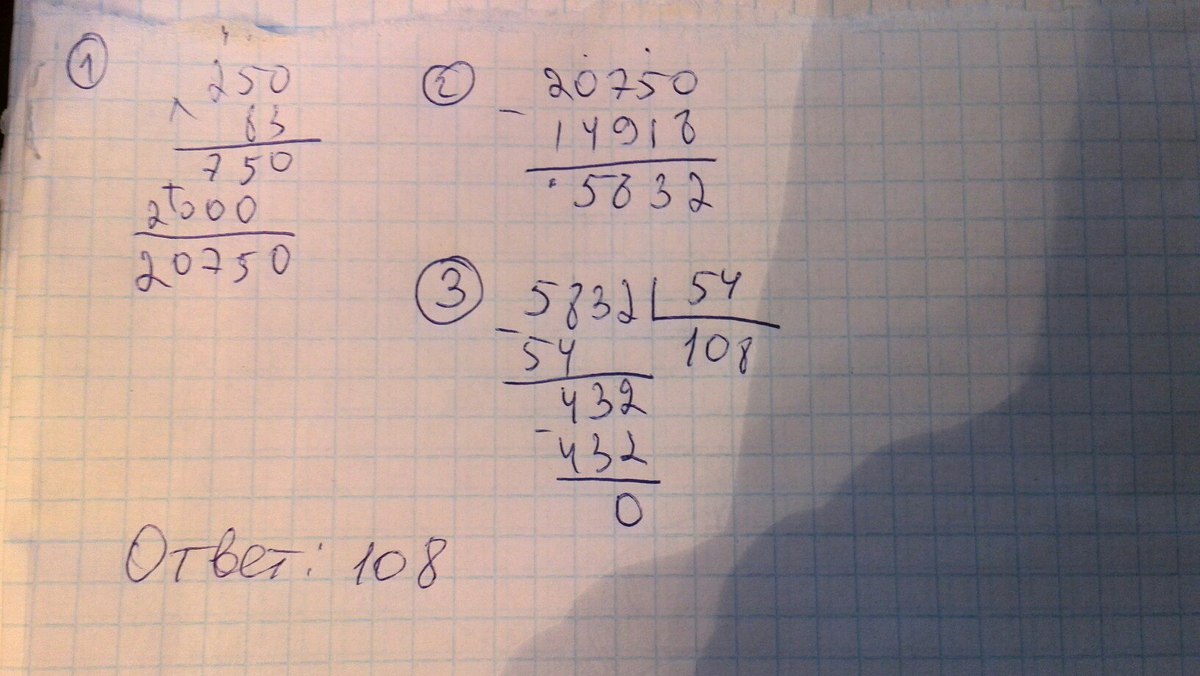 ①
250
× 83
750
+
2000
20750
②
20750
− 14918
5832
③
5832 | 54
− 54 108
432
− 432
0
Ответ: 108